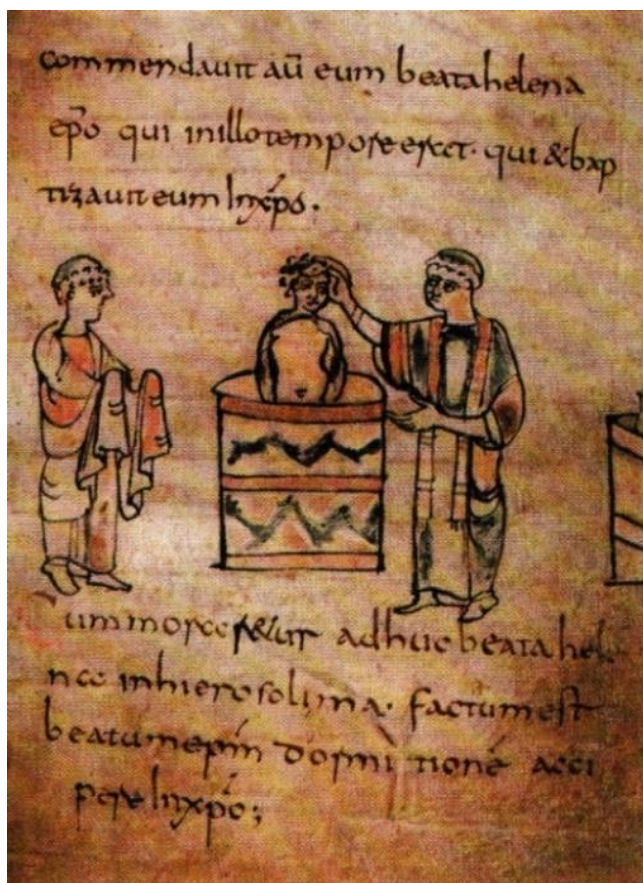 commendauit aū eum beata helena
ep̄o qui in illo tempore erat · qui & bap
tizauit eum in xp̄o .
Cum moraretur adhuc beata hele
na in hierosolima · factum est
beatum ep̄m dormitionē acci
pere in xp̄o ;